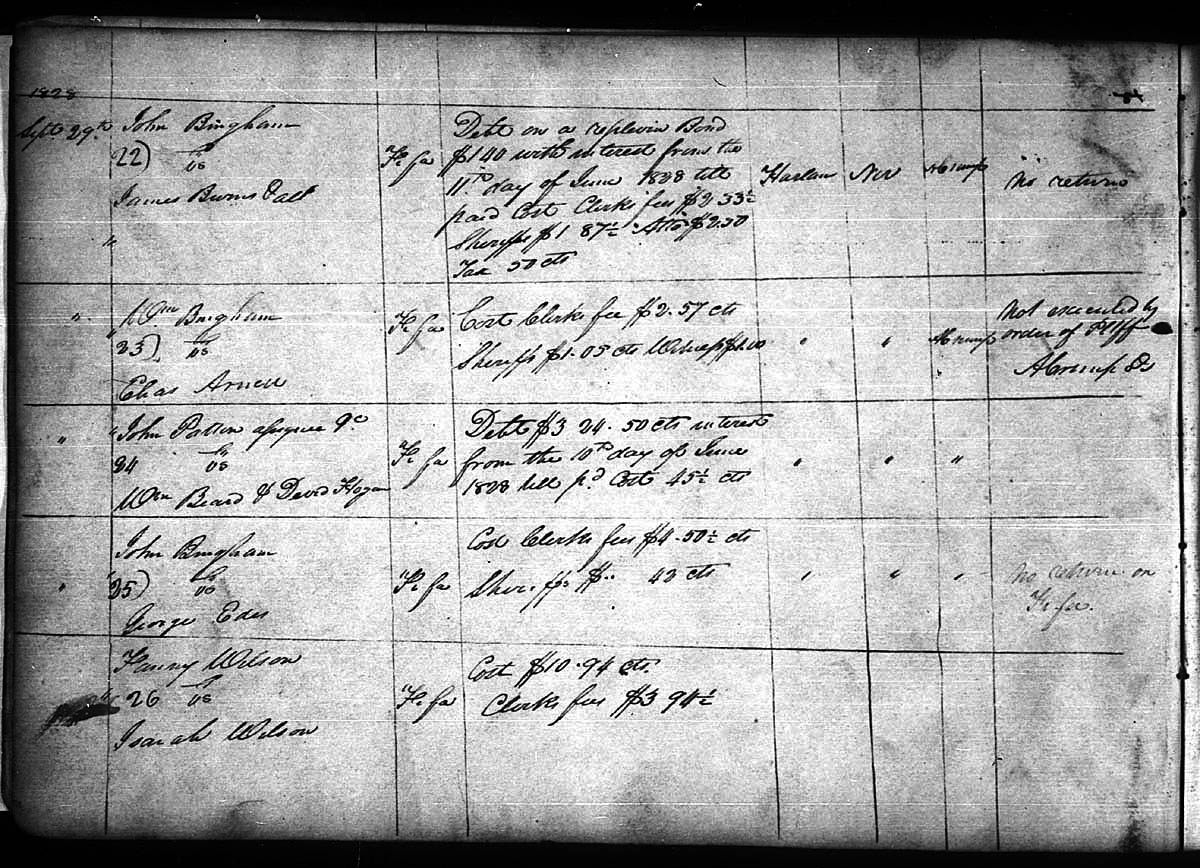 1828
Sept 29th
John Bingham
22) vs
James Burns
Fi fa
Debt on a replevin Bond
$140 with interest from the
11th day of June 1828 till
paid Cost Clerks fees $2.33½
Sheriffs $1 87½ Atto $2.50
Tax 50 cts
Harlan
Nov
A Crump
No return
"
"
Wm Bingham
23) vs
Elias Arnett
Fi fa
Cost Clerks fee $2.57 cts
Sheriffs $1.05 cts Witness $1.00
"
"
A Crump
Not executed by
order of Pltff
A Crump DS
"
"
John Patton assignee &c
24 vs
Wm Beard & David Hogan
Fi fa
Debt $3 24.50 cts interest
from the 10th day of June
1828 till pd Cost 45½ cts
"
"
"
"
John Bingham
25) vs
George Eder
Fi fa
Cost Clerks fees $4.50½ cts
Sheriffs $" 42 cts
"
"
"
No return on
Fi fa.
Fanny Wilson
26 vs
Isaiah Wilson
Fi fa
Cost $10.94 cts
Clerks fees $3 94½